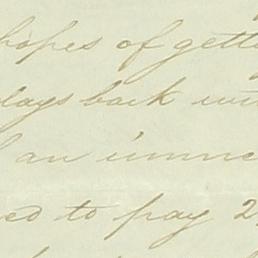 hopes of gett
days back
an imme
ed to pay 2